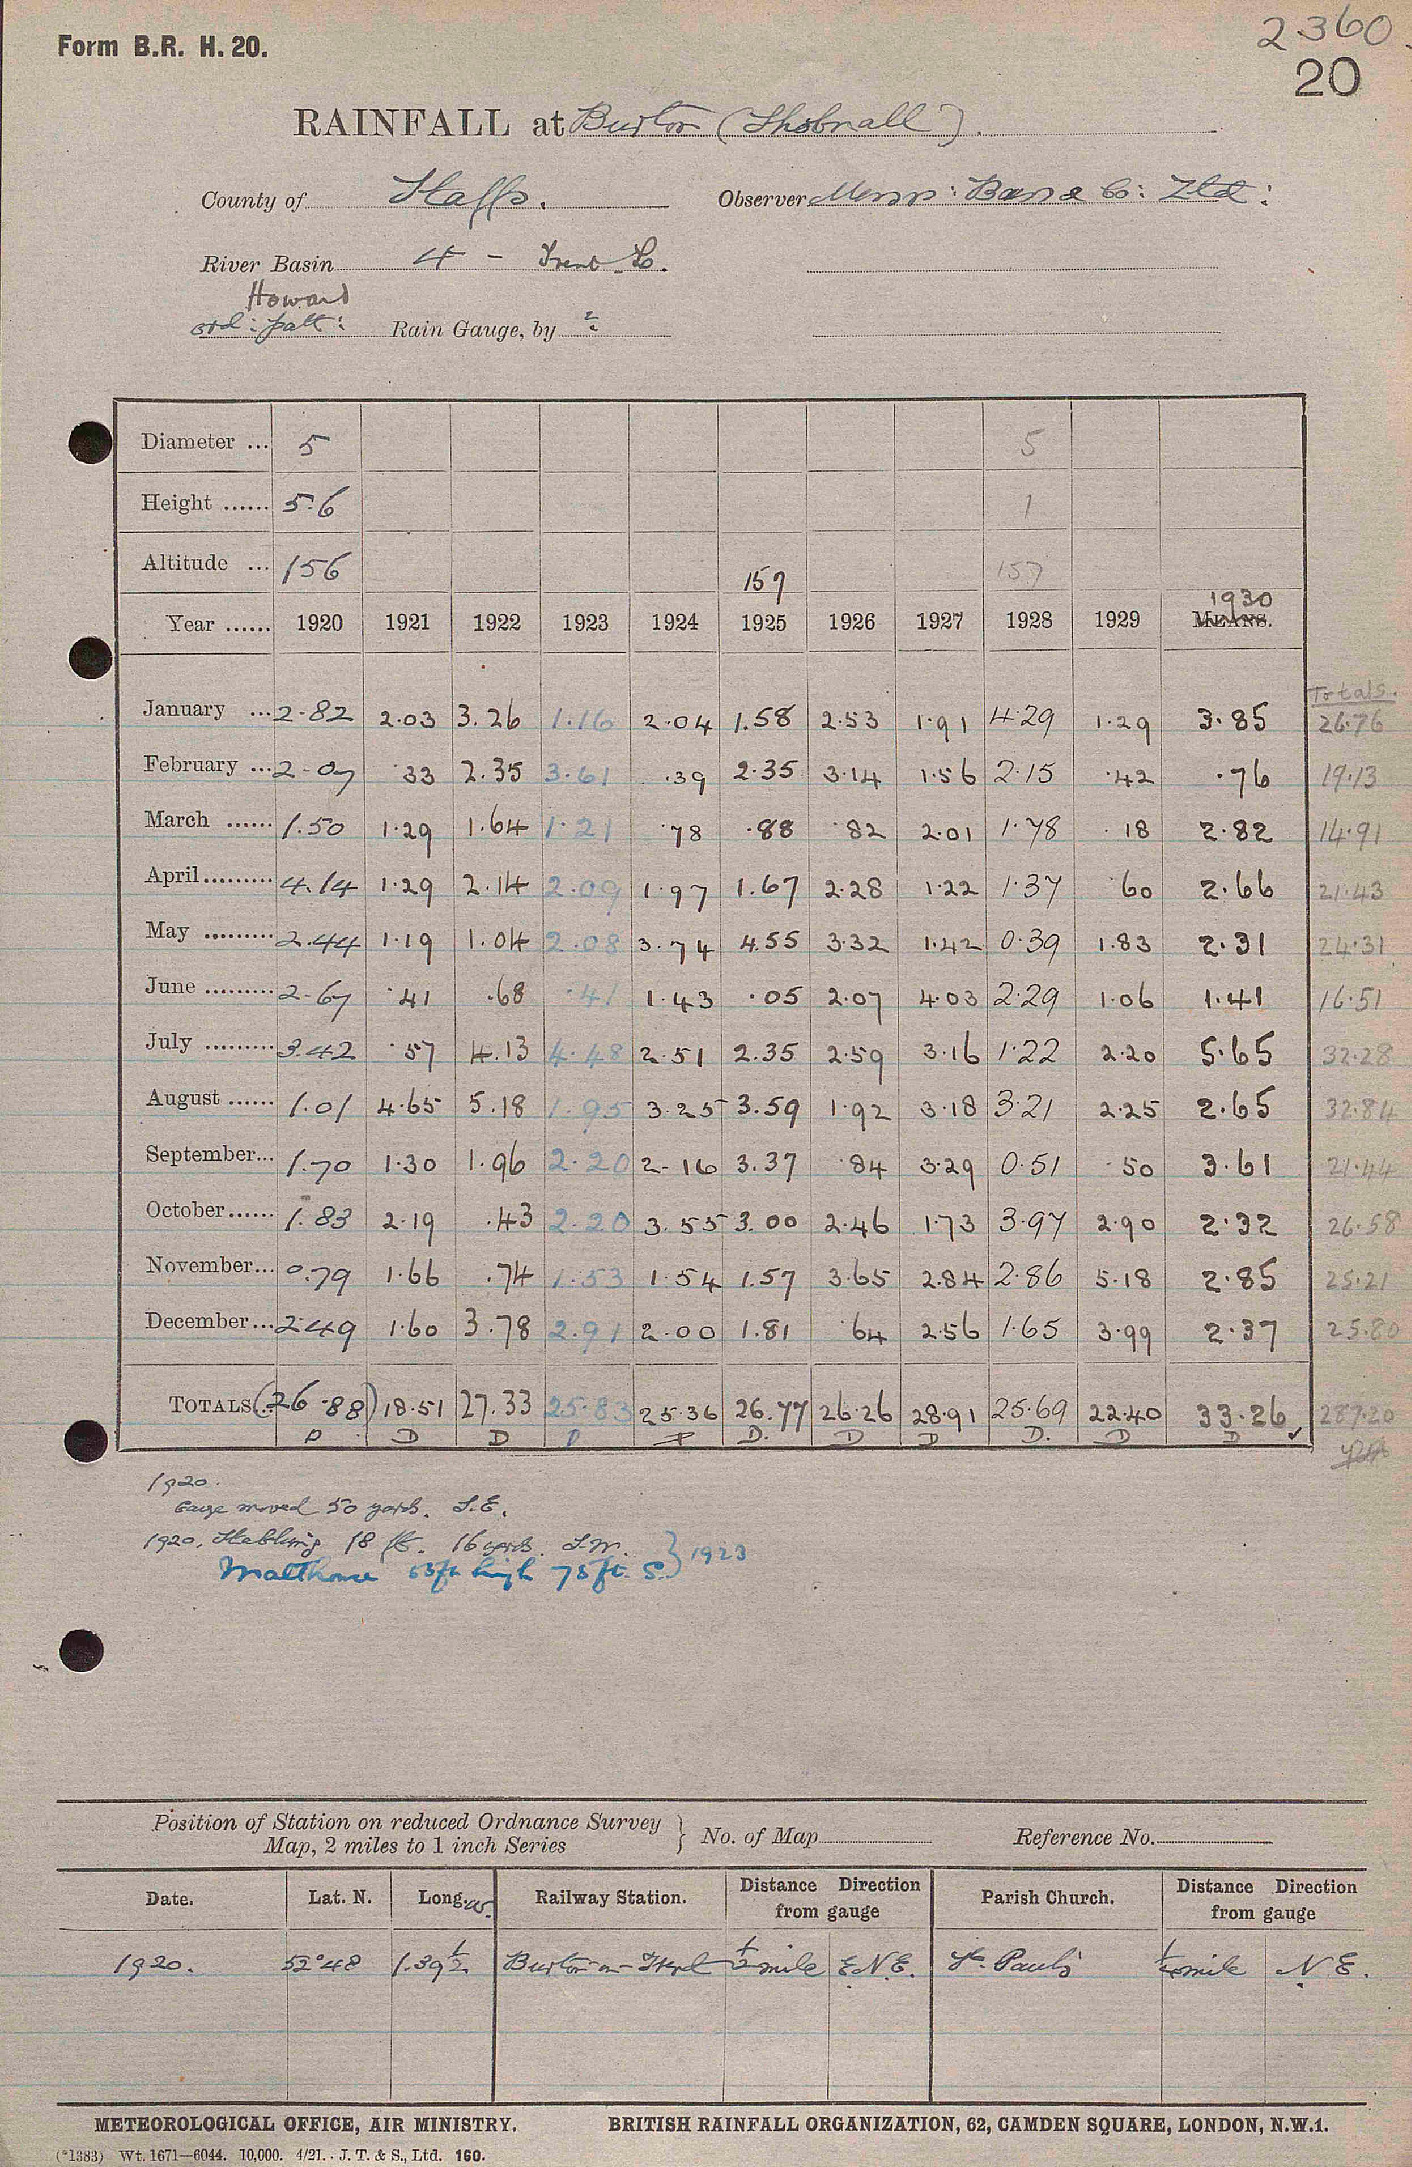 2360.
Form B.R. H. 20.
20
RAINFALL at Burton (Shobnall).
County of Staffs. Observer Messrs: Bass & Co: Ltd:
River Basin 4 - Trent &c.
Howard
ord: patt: Rain Gauge, by ?
Diameter ... 5 5
Height ...... 5.6 1
Altitude ... 156 157 157
Year ...... 1920 1921 1922 1923 1924 1925 1926 1927 1928 1929 1930 MEANS.
Totals.
January ... 2.82 2.03 3.26 1.16 2.04 1.58 2.53 1.91 4.29 1.29 3.85 26.76
February ... 2.07 .33 2.35 3.61 .39 2.35 3.14 1.56 2.15 .42 .76 19.13
March ...... 1.50 1.29 1.64 1.21 .78 .88 .82 2.01 1.78 .18 2.82 14.91
April ......... 4.14 1.29 2.14 2.09 1.97 1.67 2.28 1.22 1.37 .60 2.66 21.43
May ......... 2.44 1.19 1.04 2.08 3.74 4.55 3.32 1.42 0.39 1.83 2.31 24.31
June ......... 2.67 .41 .68 .41 1.43 .05 2.07 4.03 2.29 1.06 1.41 16.51
July ......... 3.42 .57 4.13 4.48 2.51 2.35 2.59 3.16 1.22 2.20 5.65 32.28
August ...... 1.01 4.65 5.18 1.95 3.25 3.59 1.92 3.18 3.21 2.25 2.65 32.84
September... 1.70 1.30 1.96 2.20 2.16 3.37 .84 3.29 0.51 .50 3.61 21.44
October...... 1.83 2.19 .43 2.20 3.55 3.00 2.46 1.73 3.97 2.90 2.32 26.58
November... 0.79 1.66 .74 1.53 1.54 1.57 3.65 2.84 2.86 5.18 2.85 25.21
December... 2.49 1.60 3.78 2.91 2.00 1.81 .64 2.56 1.65 3.99 2.37 25.80
TOTALS... (26.88) 18.51 27.33 25.83 25.36 26.77 26.26 28.91 25.69 22.40 33.26 287.20
P D D P P D. D D D. D D
1920.
Gauge moved 50 yards. S.E.
1920. Stabling 18 ft. 16 yards. S.W.
Malthouse 53ft high 75ft. S. } 1923
Position of Station on reduced Ordnance Survey
Map, 2 miles to 1 inch Series } No. of Map Reference No.
Date. Lat. N. Long. W. Railway Station. Distance Direction from gauge Parish Church. Distance Direction from gauge
1920. 52°48 1.39½ Burton-on-Trent ½ mile E.N.E. St. Paul's ¼ mile N.E.
METEOROLOGICAL OFFICE, AIR MINISTRY. BRITISH RAINFALL ORGANIZATION, 62, CAMDEN SQUARE, LONDON, N.W.1.
(*1383) Wt. 1671—6044. 10,000. 4/21. - J. T. & S., Ltd. 160.